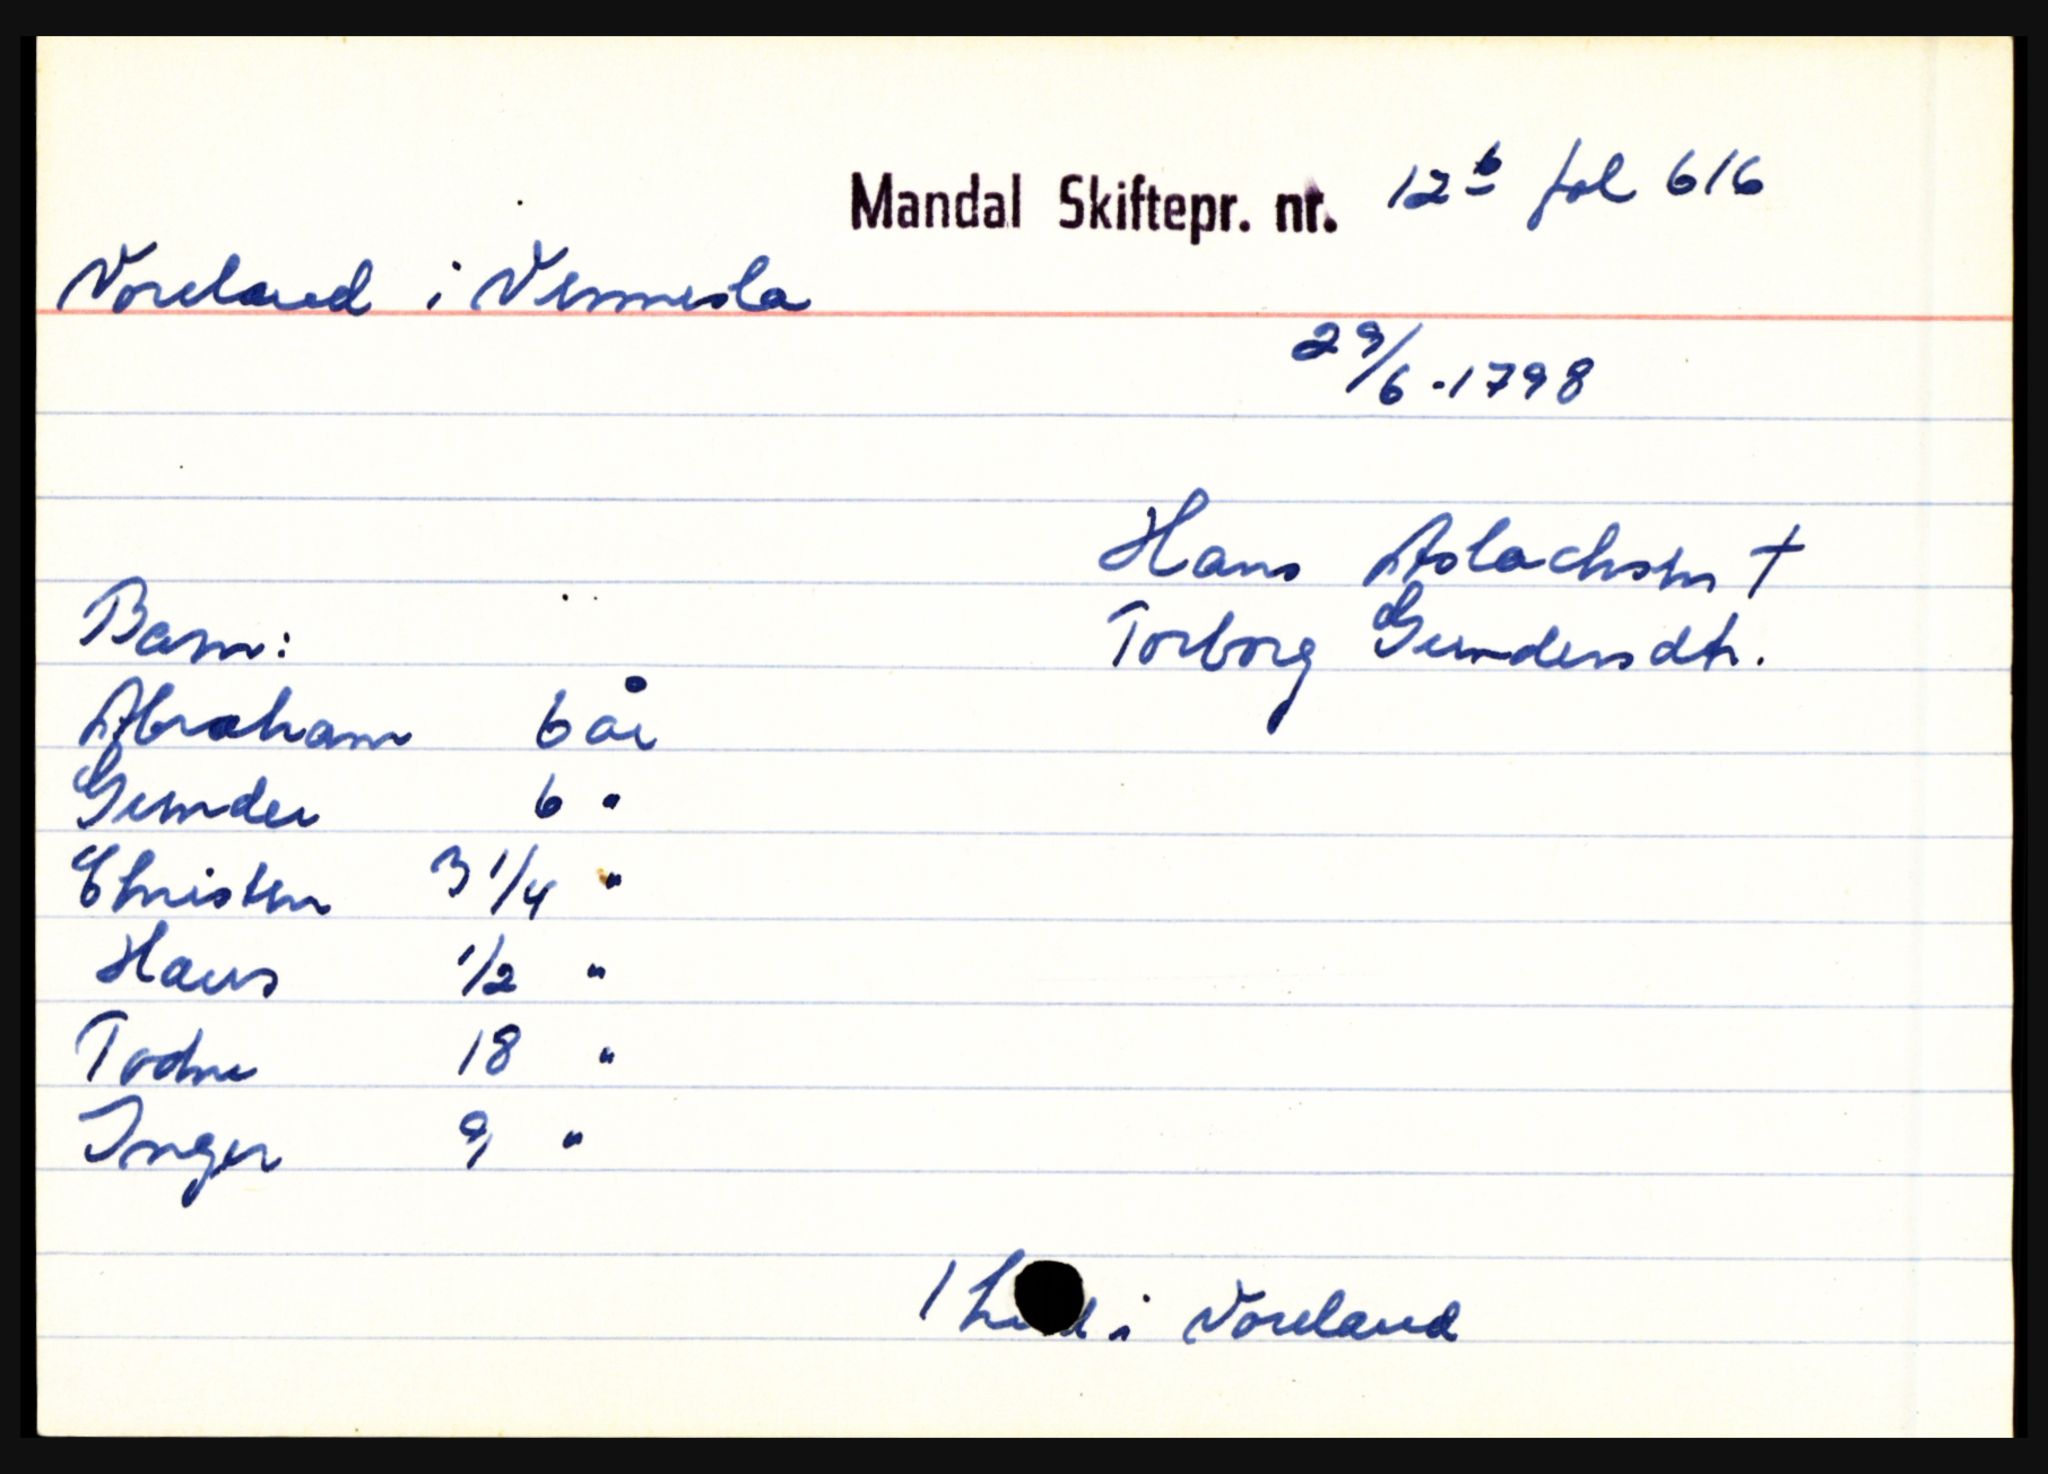 Mandal Skiftepr. nr. 12b fol 616
Voreland i Vennesla
29/6-1798
Hans Aslachsen †
Torborg Gundersdtr.
Barn:
Abraham 6 år
Gunder 6 "
Christen 3 1/4 "
Hans 1/2 "
Todne 18 "
Inger 9 "
1 i Voreland